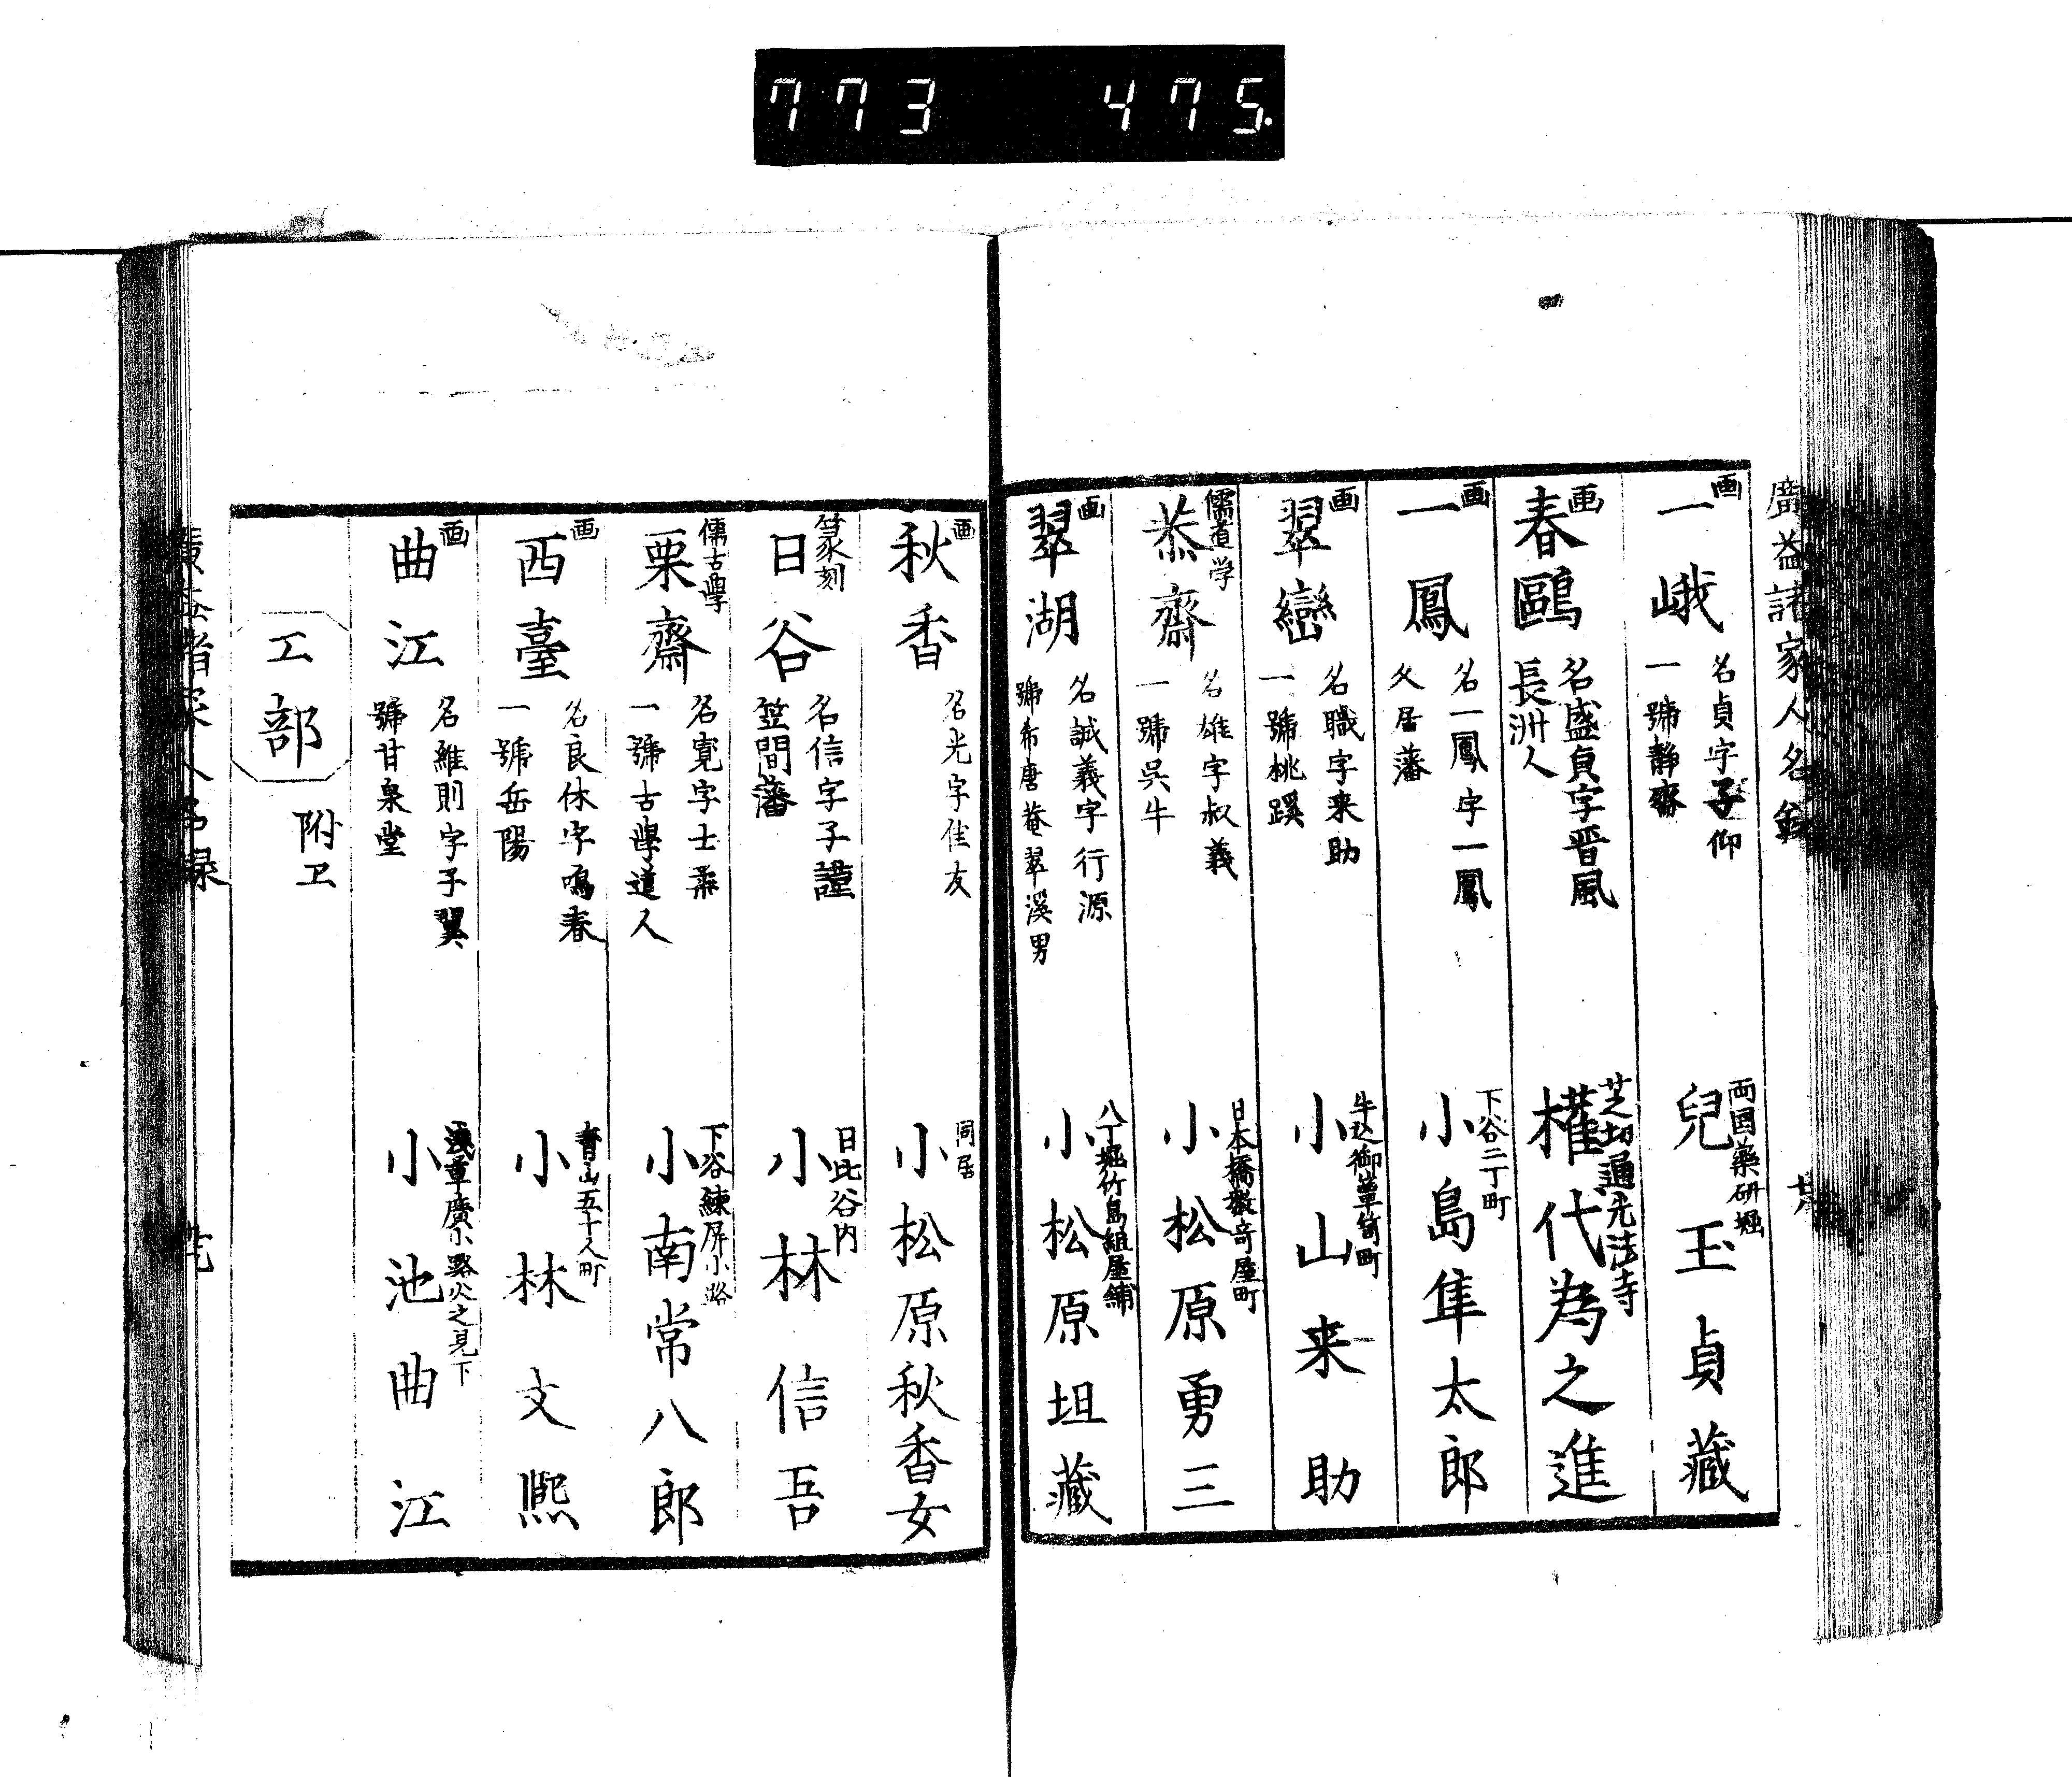 773 475.
廣益諸家人名録
画
一峨
名貞字子仰
一號静齋
両国藥研堀
兒玉貞藏
画
春鷗
名盛貞字晋風
長洲人
芝切通先法寺
權代為之進
画
一鳳
名一鳳字一鳳
久居藩
下谷二丁町
小島隼太郎
画
翠巒
名職字来助
一號桃蹊
牛込御箪笥町
小山来助
儒道学
恭齋
名雄字叔義
一號呉牛
日本橋數寄屋町
小松原勇三
画
翠湖
名誠義字行源
號希唐菴翠溪男
八丁堀竹島組屋鋪
小松原坦藏
画
秋香
名光字佳友
同居
小松原秋香女
篆刻
日谷
名信字子謹
笠間藩
日比谷内
小林信吾
儒古學
栗齋
名寛字士栗
一號古學道人
下谷練屏小路
小南常八郎
画
西臺
名良休字鳴春
一號岳陽
青山五十人町
小林文熙
画
曲江
名維則字子翼
號甘泉堂
浅草廣小路火之見下
小池曲江
工部
附ヱ
廣益諸家人名録